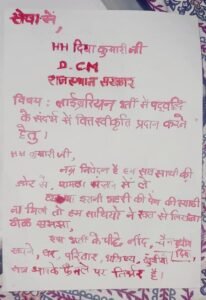 सेवा में,
HH दिया कुमारी जी
D.CM
राजस्थान सरकार
विषय : लाईब्रेरियन भर्ती में पदवृद्धि
के संदर्भ में वित्त स्वीकृति प्रदान करने
हेतु।
HH कुमारी जी,
नम्र निवेदन है हम सब साथी की
ओर से,
इतनी गहरी की पेन की स्याही
ना मिली तो हम साथियों ने रक्त से लिखना
ठीक समझा,
इस भर्ती के पीछे नींद, चैन
घर, परिवार, भविष्य,
सब आपके फैसले पर निर्भर है।